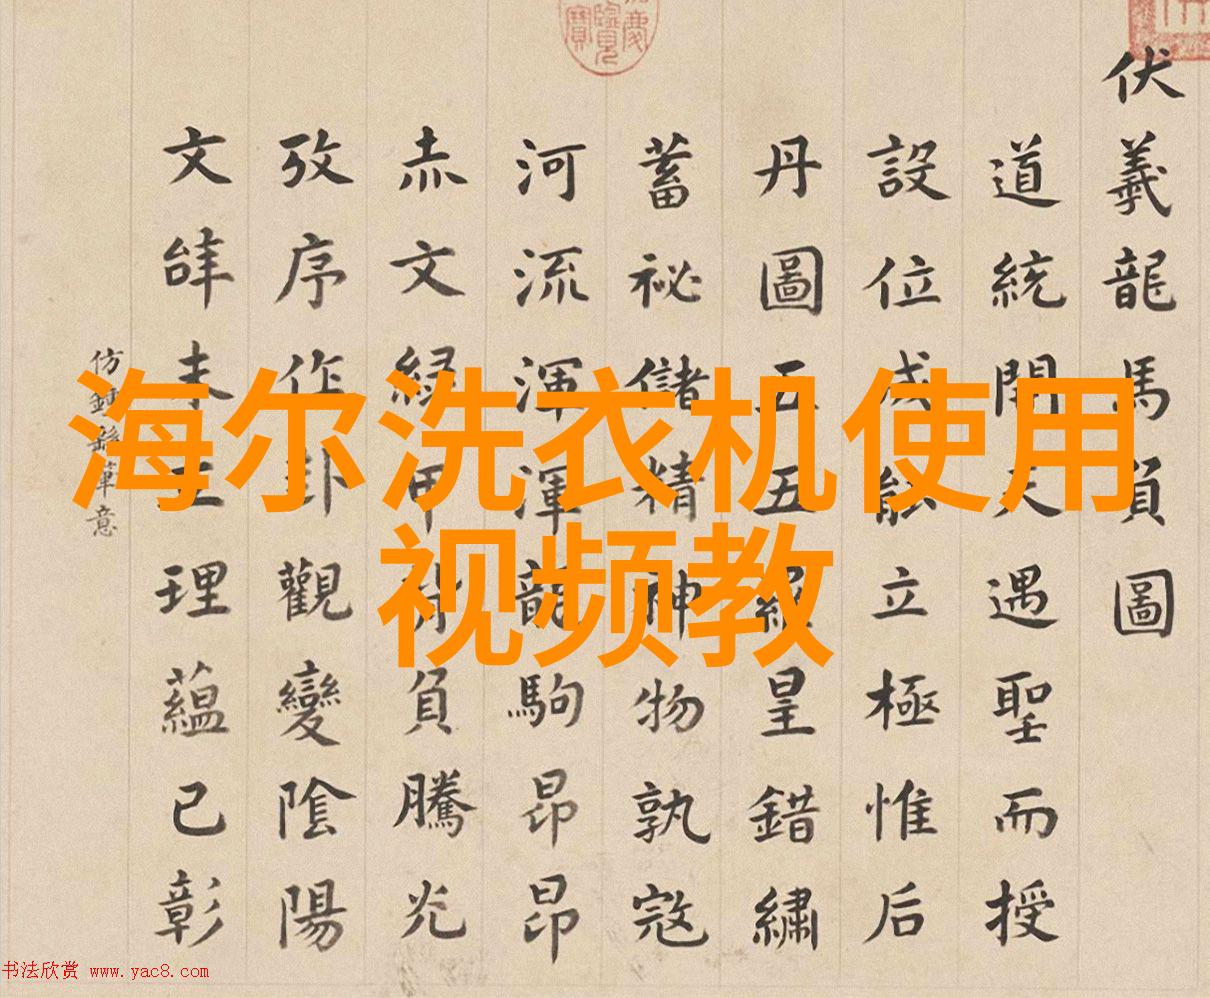 伏羲龍馬負圖
道統開天遇聖而授
設位成能立極惟后
丹圖五五羅皇錯繡
蓄祕儲精神物孰寇
河流渾渾龍駒昂昂
赤文綠甲背負騰光
攷序作卦觀變陰陽
文辭未王理蘊已彰
仿 意
海尔洗衣机使用
视频教
书法欣赏 www.yac8.com